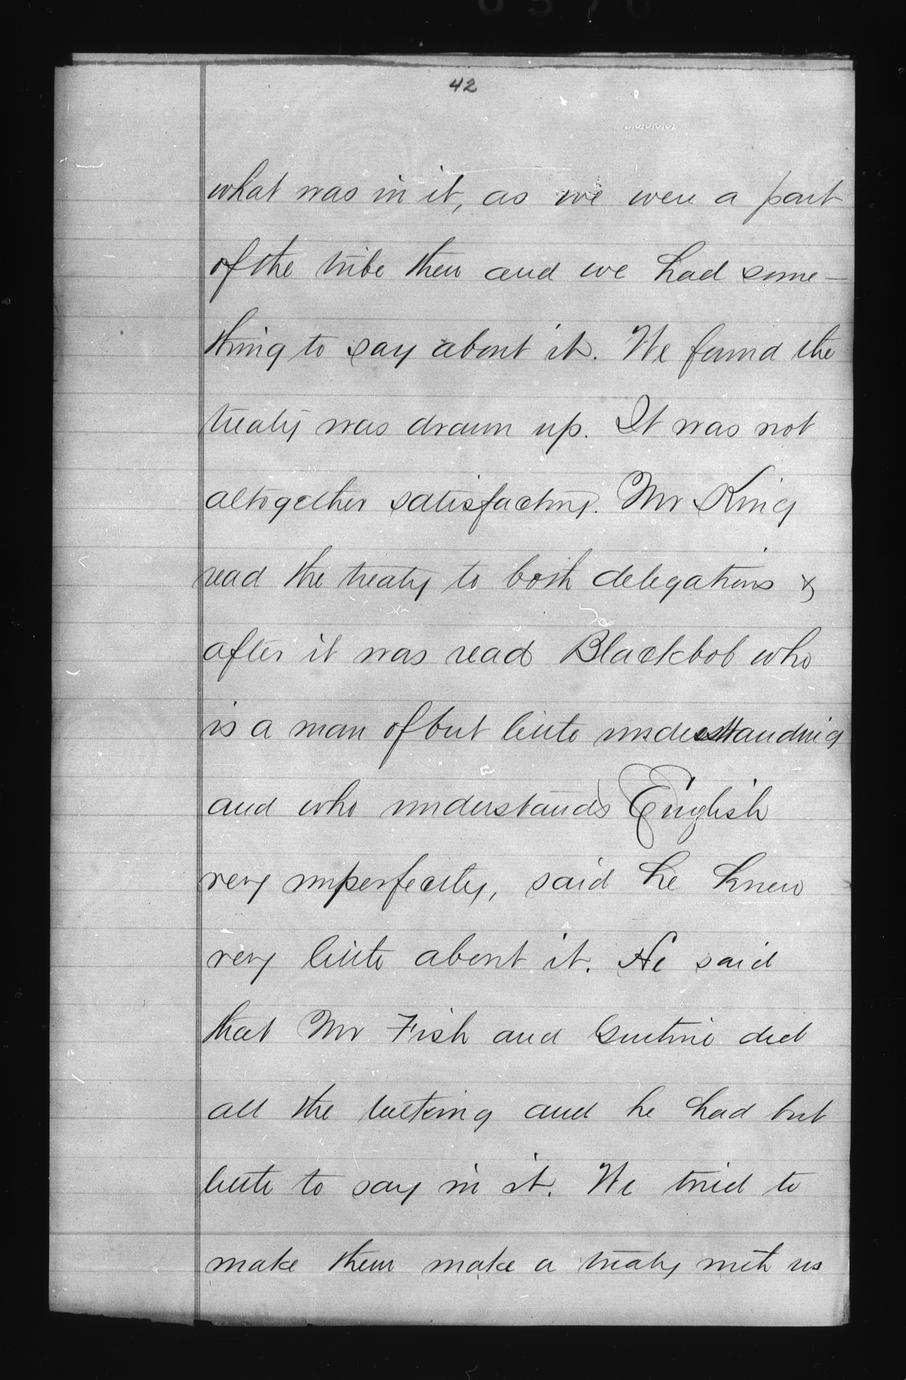 42
what was in it, as we were a part
of the tribe then and we had some-
thing to say about it. We found the
treaty was drawn up. It was not
altogether satisfactory. Mr King
read the treaty to both delegations &
after it was read Blackbob who
is a man of but little understanding
and who understands English
very imperfectly, said he knew
very little about it. He said
that Mr Fish and did
all the talking and he had but
little to say in it. We tried to
make them make a treaty with us